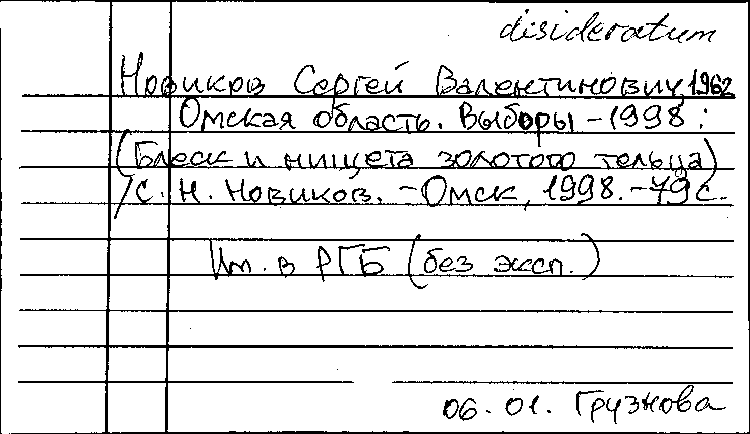 disideratum
Новиков Сергей Валентинович, 1962
Омская область. Выборы - 1998 :
(Блеск и нищета золотого тельца)
/С. Н. Новиков. - Омск, 1998. - 79 с.
Им. в РГБ (без эксп.)
06. 01. Грузнова